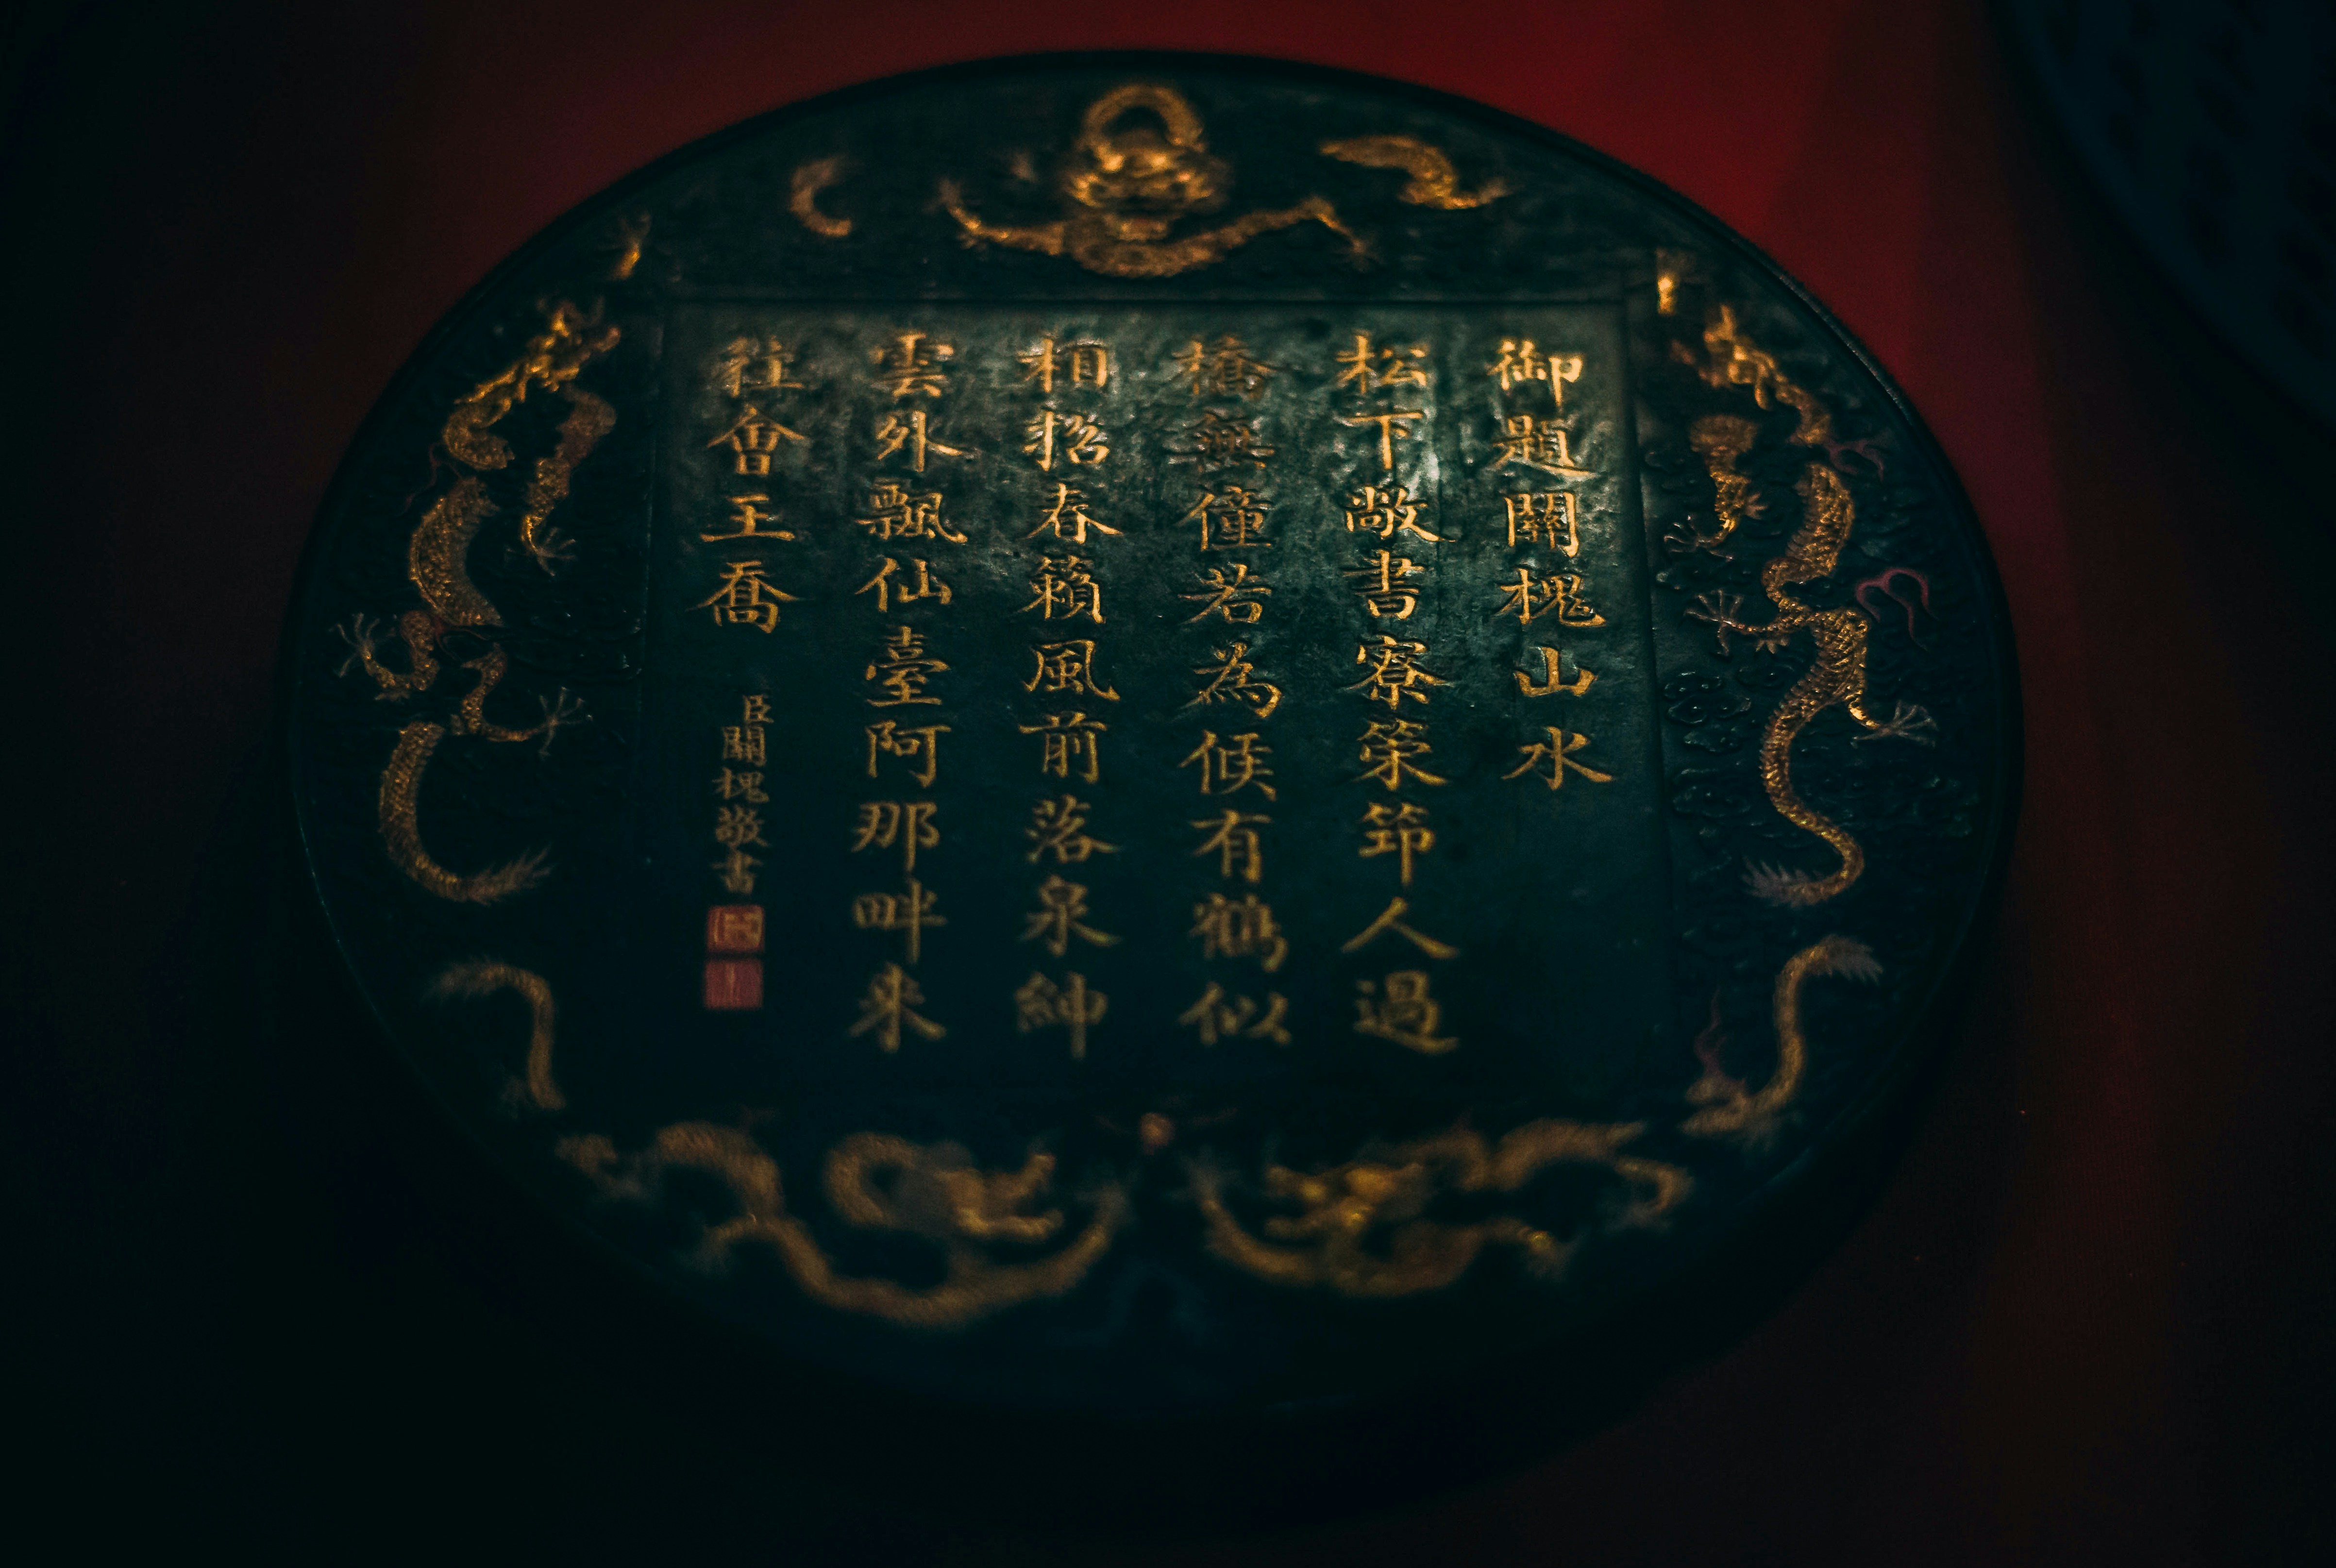 御題關槐山水
松下敞書寮筞笻人過
橋無僮若為候有鶴似
相招春籟風前落泉紳
雲外飄仙臺阿那畔来
往會王喬
臣關槐敬書